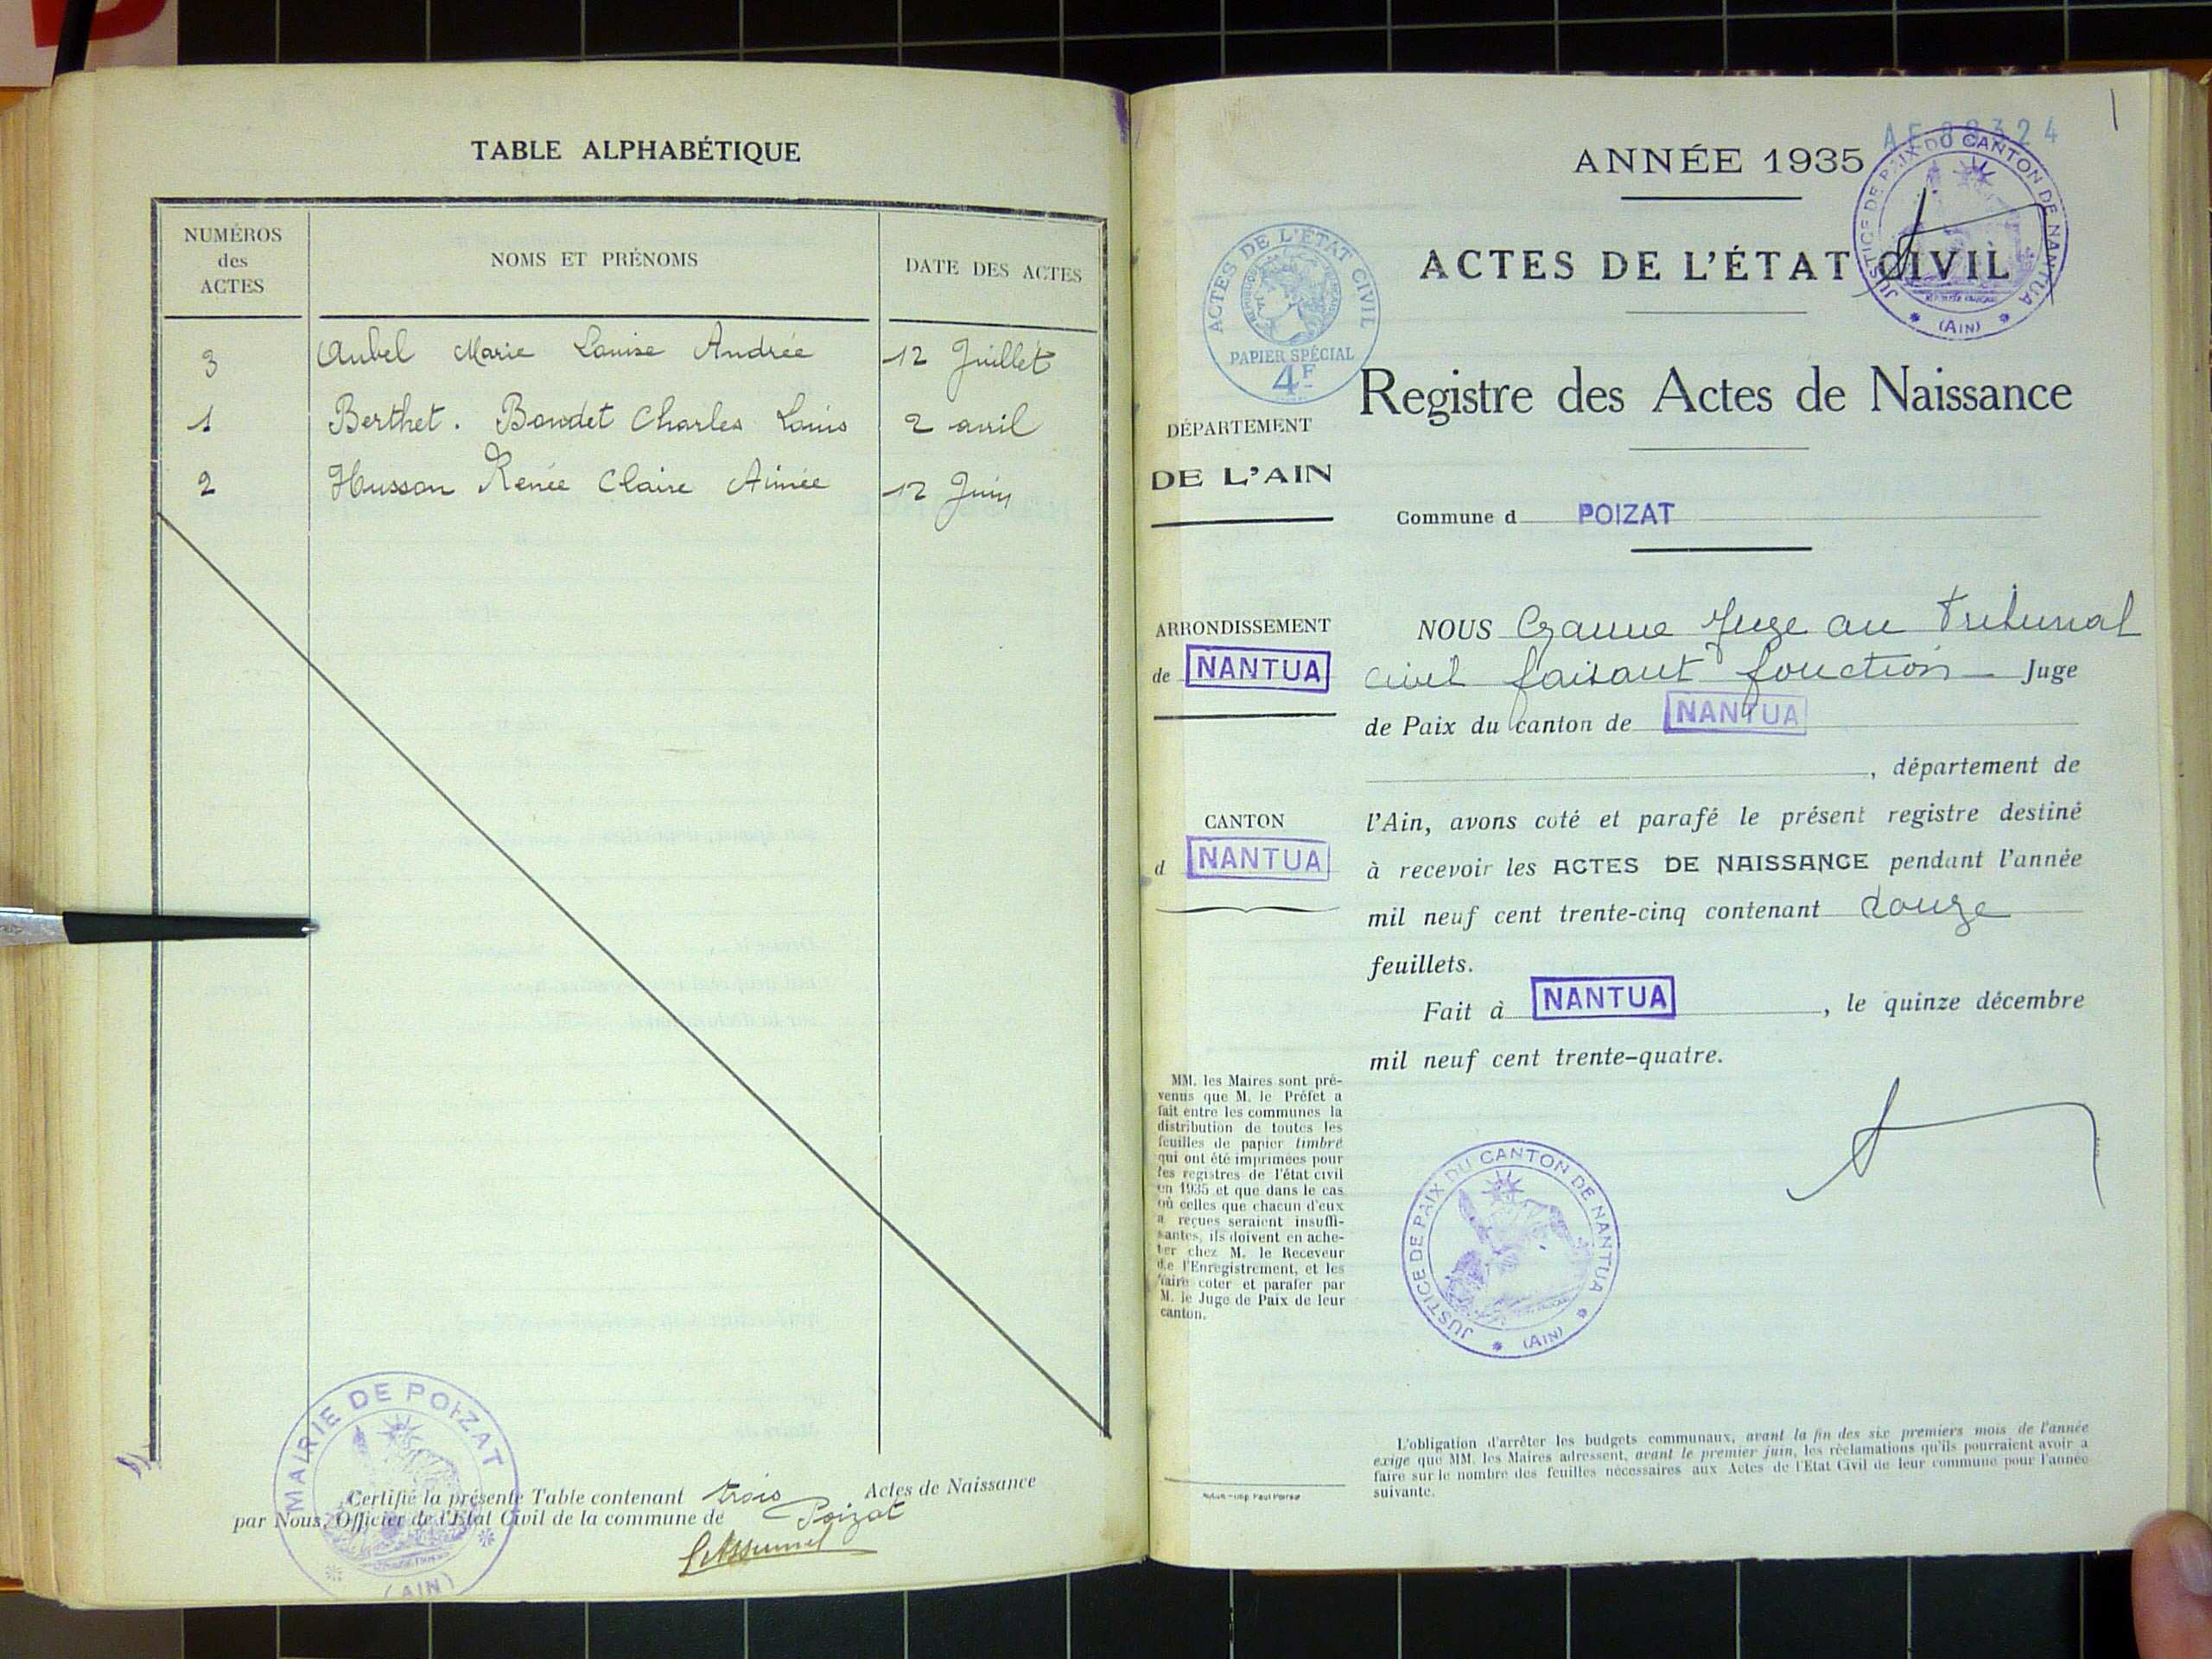 TABLE ALPHABÉTIQUE
NUMÉROS
des
ACTES
NOMS ET PRÉNOMS
DATE DES ACTES
3 Aubel Marie Louise Andrée 12 Juillet
1 Berthet. Boudet Charles Louis 2 avril
2 Husson Renée Claire Aimée 12 Juin
MAIRIE DE POIZAT
(AIN)
Certifié la présente Table contenant trois Actes de Naissance
par Nous, Officier de l'Etat Civil de la commune de Poizat
ANNÉE 1935
JUSTICE DE PAIX DU CANTON DE NANTUA
(AIN)
ACTES DE L'ÉTAT CIVIL
PAPIER SPÉCIAL
4F
ACTES DE L'ÉTAT CIVIL
Registre des Actes de Naissance
DÉPARTEMENT
DE L'AIN
Commune d POIZAT
ARRONDISSEMENT
de NANTUA
CANTON
d NANTUA
NOUS Juge au Tribunal
civil faisant fonction Juge
de Paix du canton de NANTUA
, département de
l'Ain, avons coté et parafé le présent registre destiné
à recevoir les ACTES DE NAISSANCE pendant l'année
mil neuf cent trente-cinq contenant douze
feuillets.
Fait à NANTUA, le quinze décembre
mil neuf cent trente-quatre.
MM. les Maires sont pré-
venus que M. le Préfet a
fait entre les communes la
distribution de toutes les
feuilles de papier timbré
qui ont été imprimées pour
les registres de l'état civil
en 1935 et que dans le cas
où celles que chacun d'eux
a reçues seraient insuffi-
santes, ils doivent en ache-
ter chez M. le Receveur
de l'Enregistrement, et les
faire coter et parafer par
M. le Juge de Paix de leur
canton.
JUSTICE DE PAIX DU CANTON DE NANTUA
(AIN)
L'obligation d'arrêter les budgets communaux, avant la fin des six premiers mois de l'année
exige que MM. les Maires adressent, avant le premier juin, les réclamations qu'ils pourraient avoir à
faire sur le nombre des feuilles nécessaires aux Actes de l'Etat Civil de leur commune pour l'année
suivante.